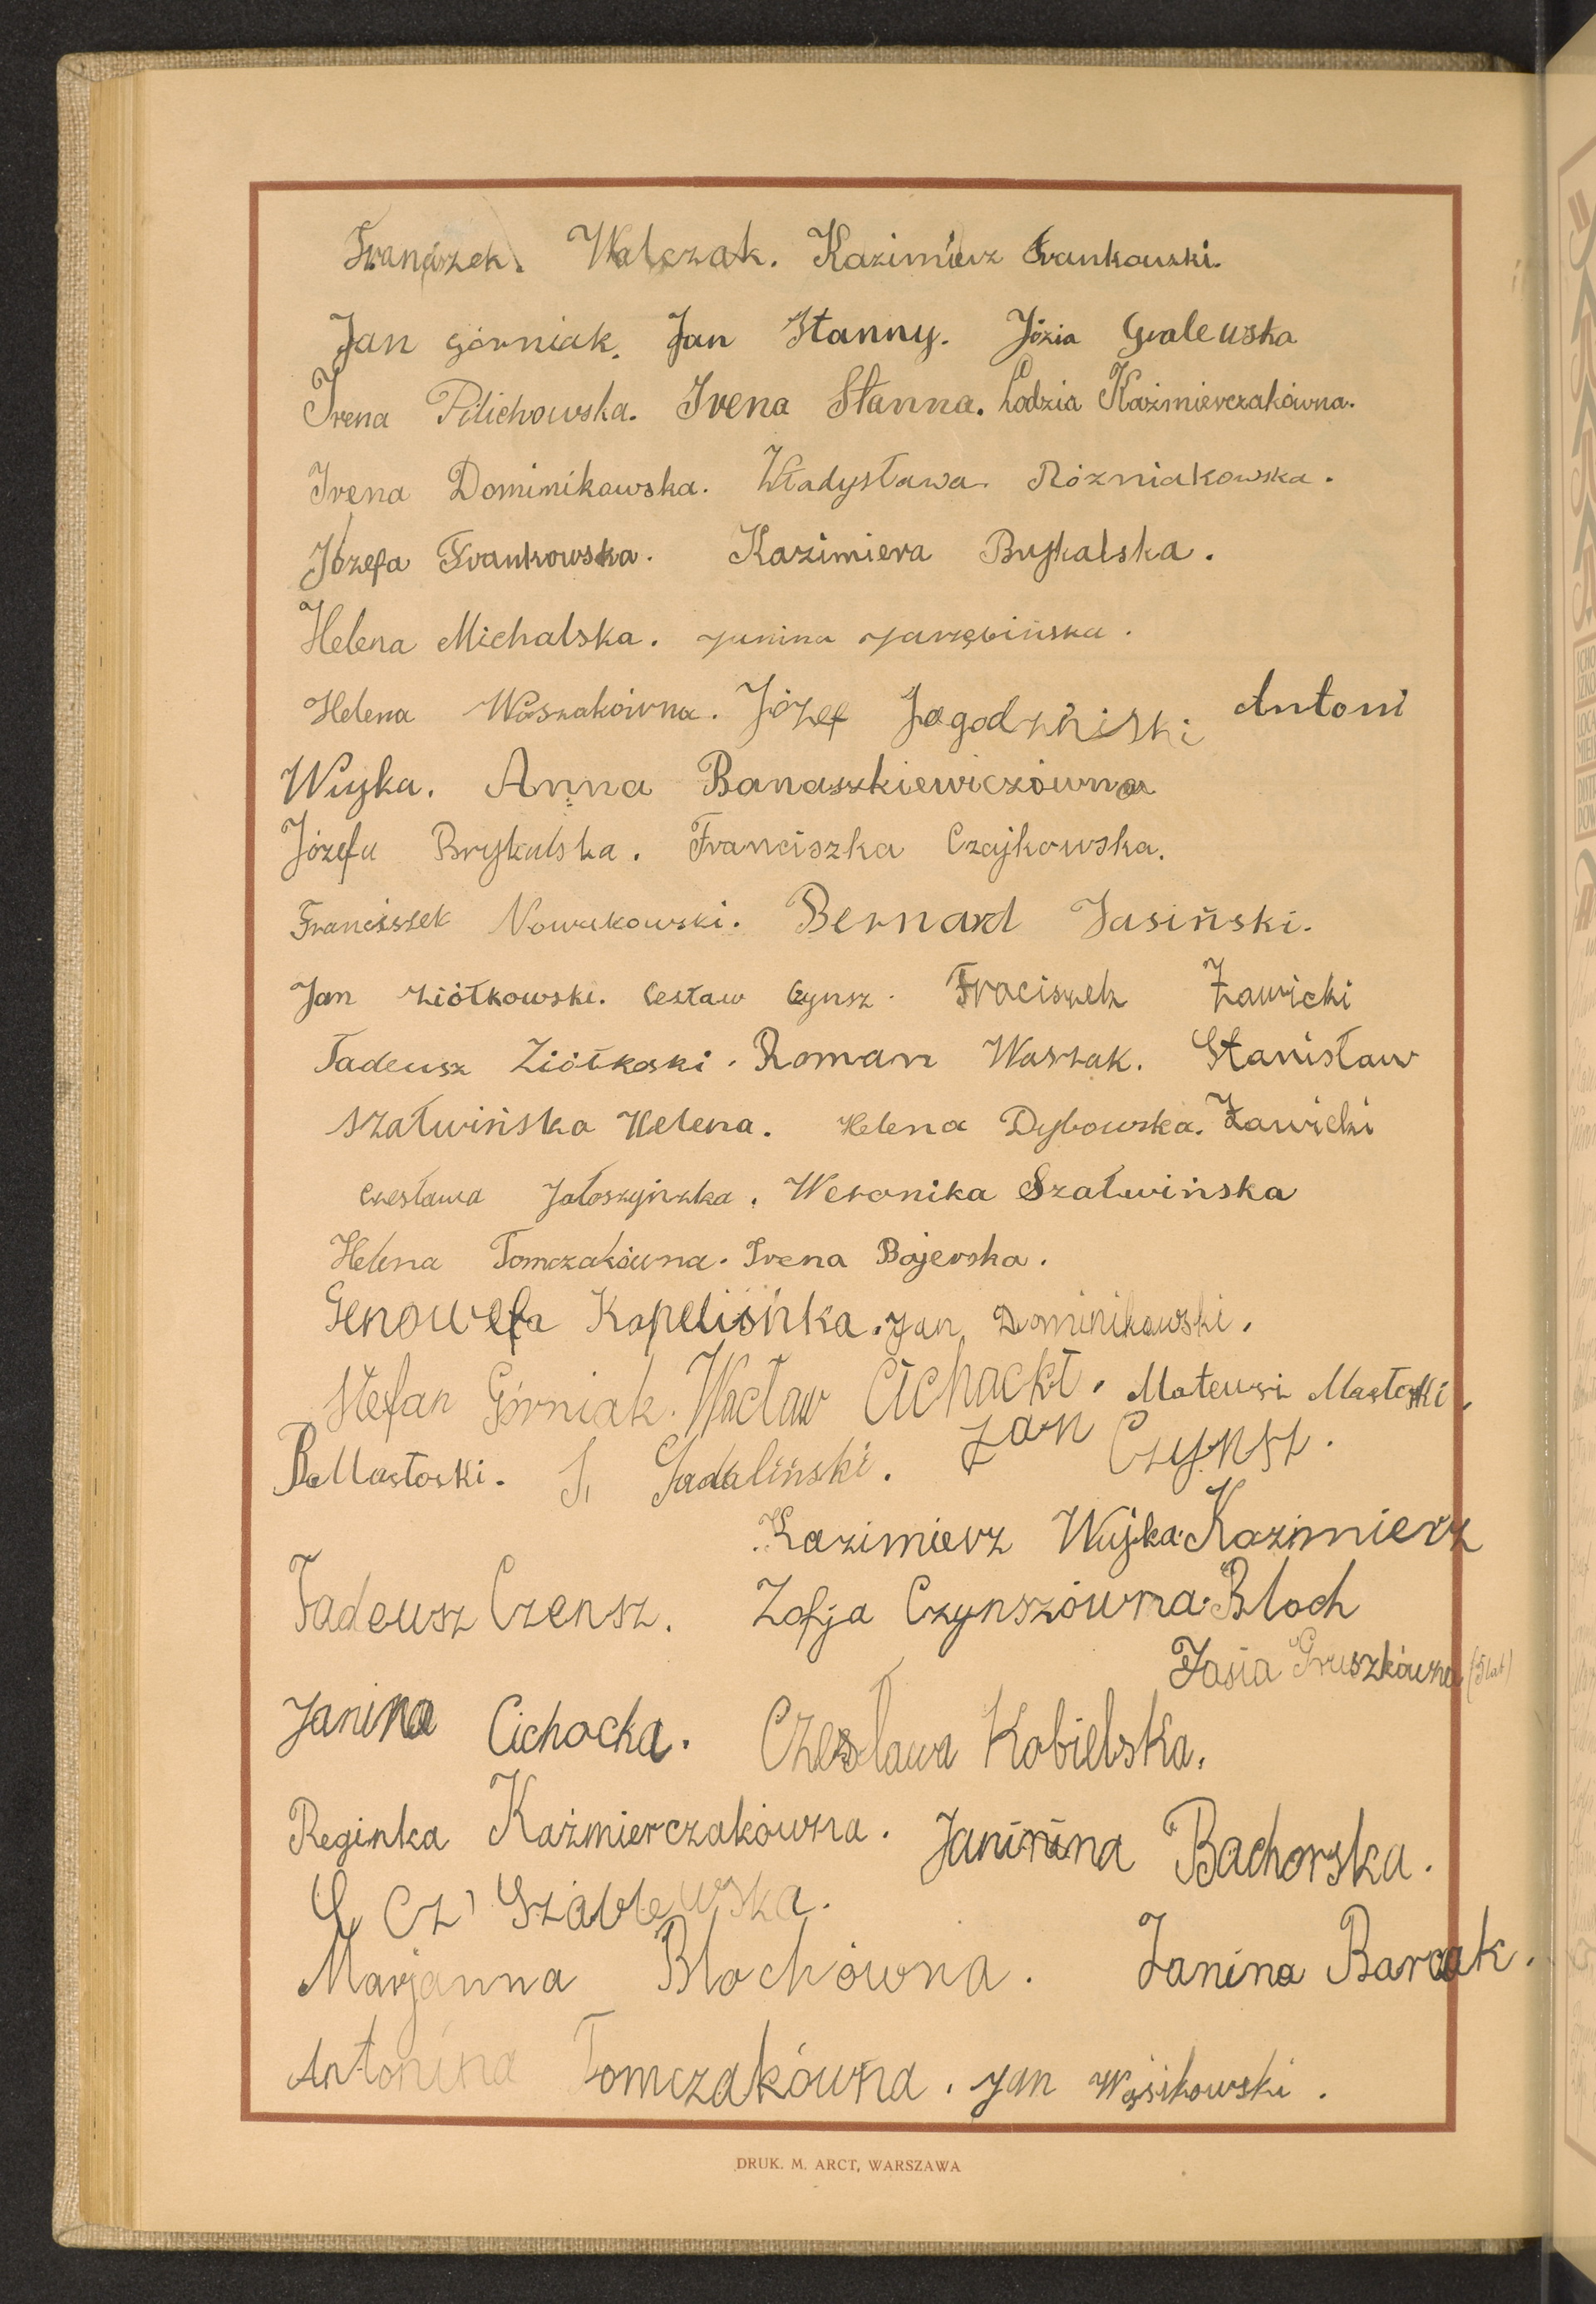 Franciszek. Walczak. Kazimierz Frankowski.
Jan Górniak. Jan Stanny. Józia Gralewska
Irena Pilichowska. Irena Stanna. Lodzia Kaźmierczakówna.
Irena Dominikowska. Władysława Rózniakowska.
Józefa Frankowska. Kazimiera Brykalska.
Helena Michalska. Janina Jarzębińska.
Helena Waszakówna. Józef Jagodziński Antoni
Wujka. Anna Banaszkiewiczówna
Józefa Brykalska. Franciszka Czajkowska.
Franciszek Nowakowski. Bernard Jasiński.
Jan Ziółkowski. Cesław Czynsz. Fraciszek Zawicki
Tadeusz Ziółkoski. Roman Waszak. Stanisław
Szałwińska Helena. Helena Dybowska. Zawicki
Czesława Jałoszyńska. Weronika Szałwińska
Helena Tomczakówna. Irena Bojerska.
Genowefa Kapelisińka. Jan Dominikowski.
Stefan Górniak. Wacław Cichacki. Mateusz Mastoski.
B. Mastoski. S. Sadaliński. Jan Czynsz.
Kazimierz Wujka. Kazimierz
Tadeusz Czensz. Zofja Czynszówna. Bloch
Jasia Gruszkówna (5 lat)
Janina Cichocka. Czesława Kobielska.
Reginka Kaźmierczakówna. Janinina Bachorska.
Cz. Szablewska.
Marjanna Blochówna. Janina Barczak.
Antonina Tomczakówna. Jan Wąsikowski.
DRUK. M. ARCT, WARSZAWA